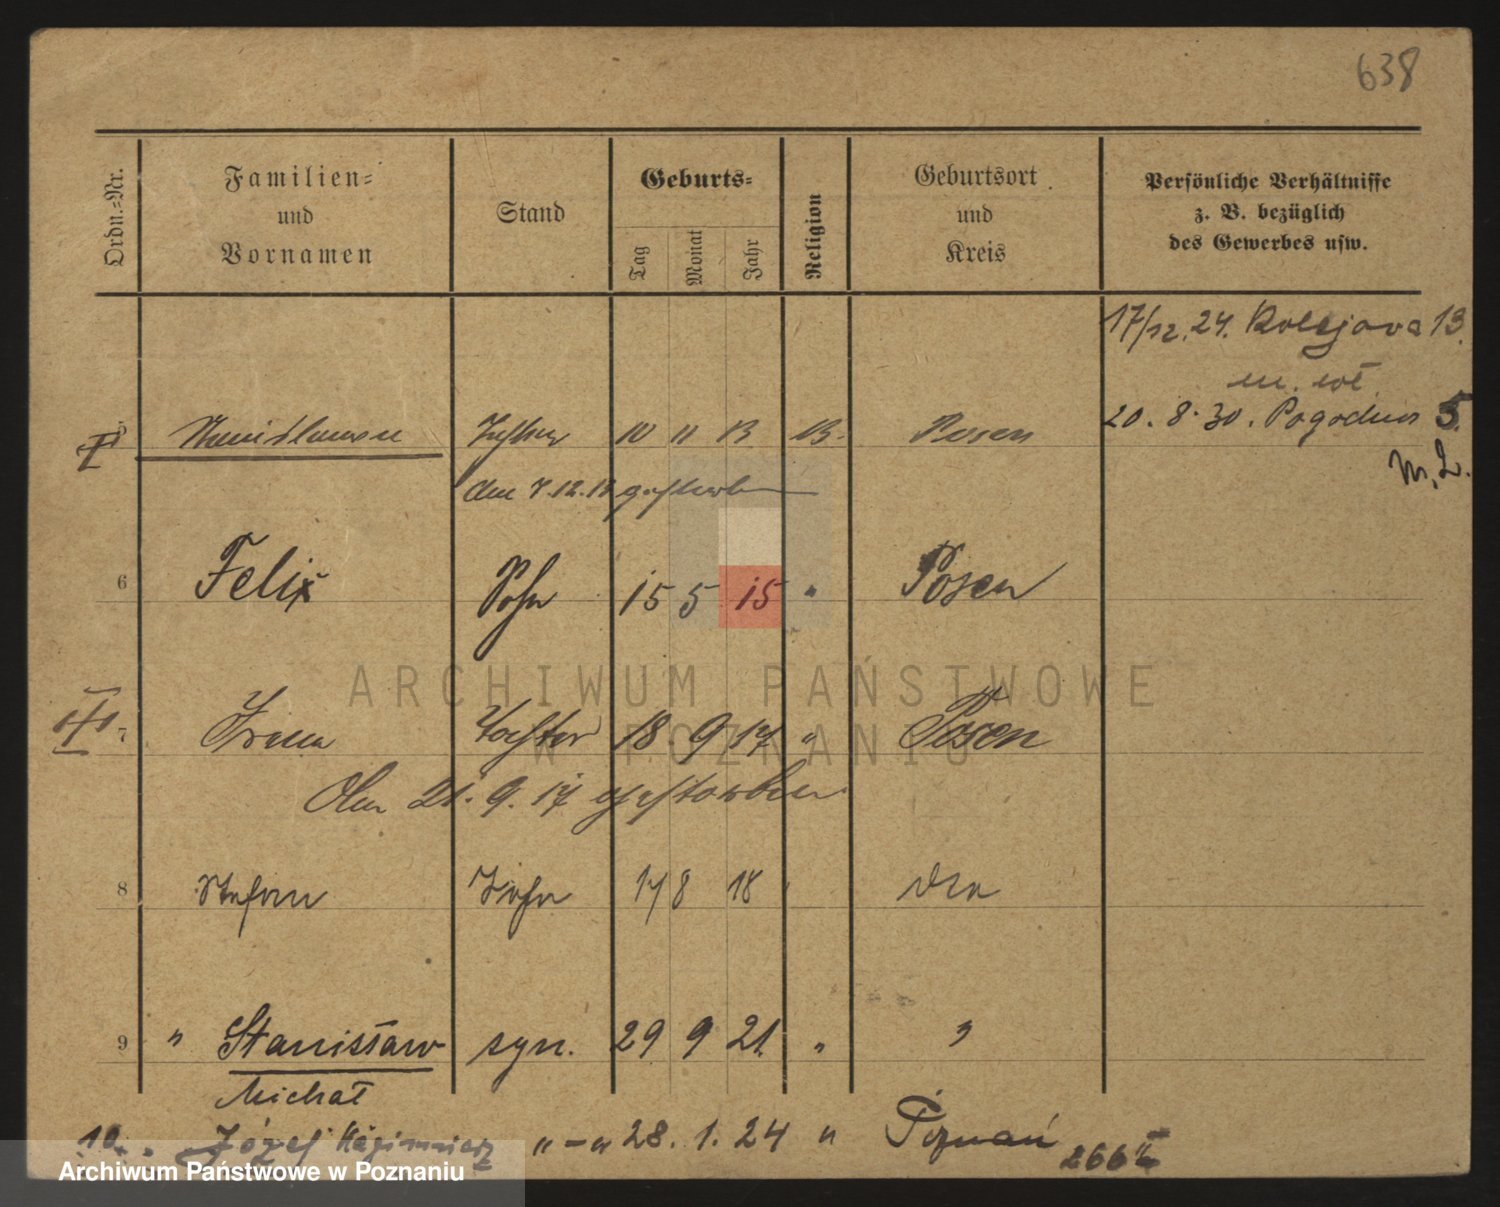 638
Ordn.-Nr.
Familien-
und
Vornamen
Stand
Geburts-
Tag
Monat
Jahr
Religion
Geburtsort
und
Kreis
Persönliche Verhältnisse
z. B. bezüglich
des Gewerbes usw.
17/12. 24. Kolejova 13.
m. wł
20. 8. 30. Pogodna 5.
m. 2.
5 10 11 13 Posen
den 7.12.13 gestorben
6 Felix Sohn 15 5 15 " Posen
III 7 Irena Tochter 18 9 17 " Posen
Am 21. 9. 17 gestorben
8 Stefan Sohn 17 8 18
9 " Stanisław syn. 29 9 21 " "
Michał
10. Józef Kazimierz " – " 28. 1. 24 " Poznań
266
ARCHIWUM PAŃSTWOWE
W POZNANIU
Archiwum Państwowe w Poznaniu